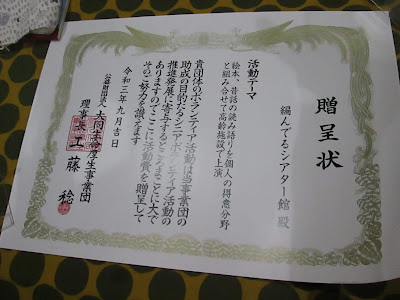 贈呈状
編んでるシアター館 殿
活動テーマ
絵本・昔話の読み語りを個人の得意分野
と組み合せて高齢施設で上演
貴団体のボランティア活動は当事業団の
助成の目的たるシニアボランティア活動の
推進発展に寄与するところまことに大で
ありますのでここに活動費を贈呈して
そのご努力を讃えます
令和三年九月吉日
公益財団法人 大同生命厚生事業団
理事長 工藤 稔